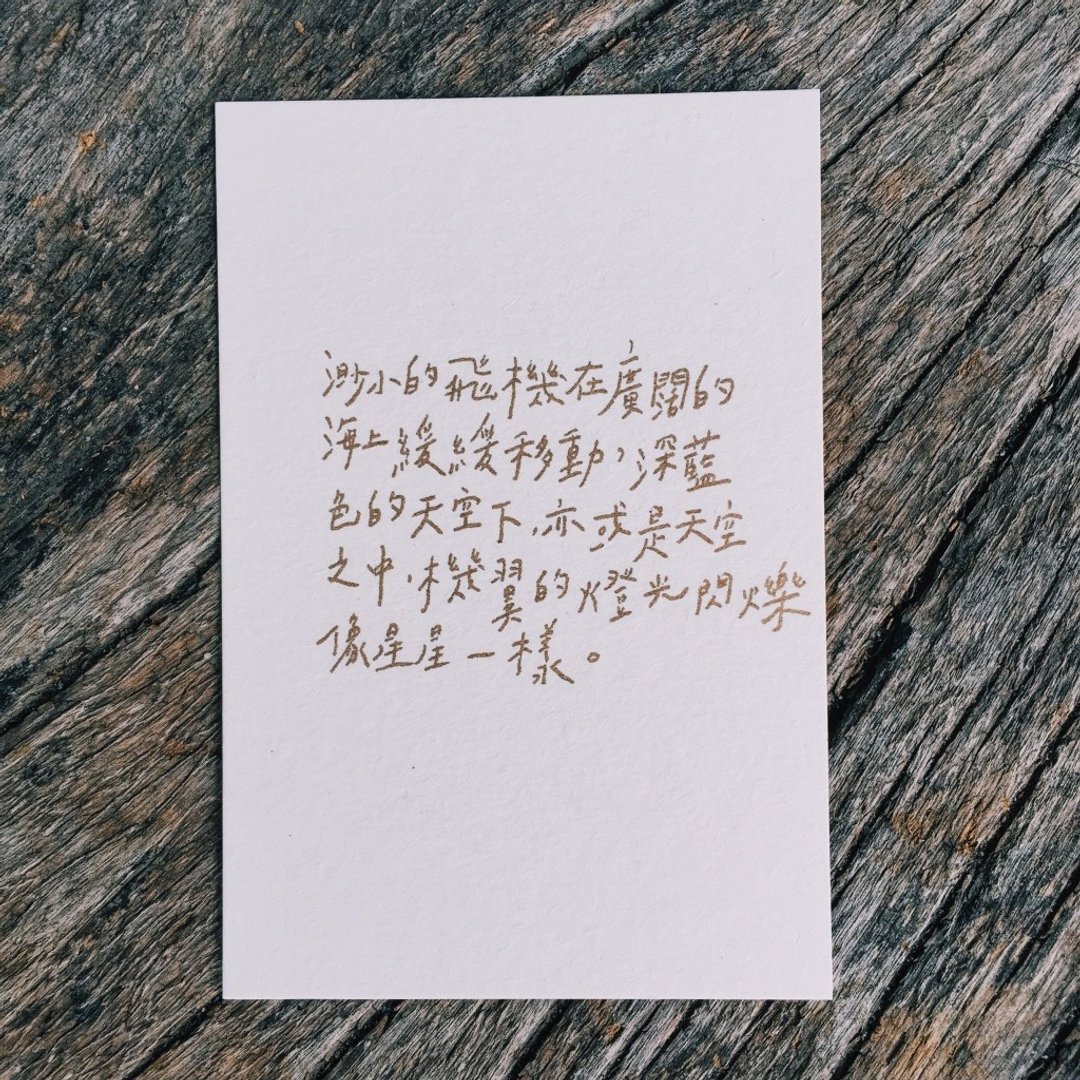 渺小的飛機在廣闊的
海上緩緩移動，深藍
色的天空下，亦或是天空
之中，機翼的燈光閃爍
像星星一樣。